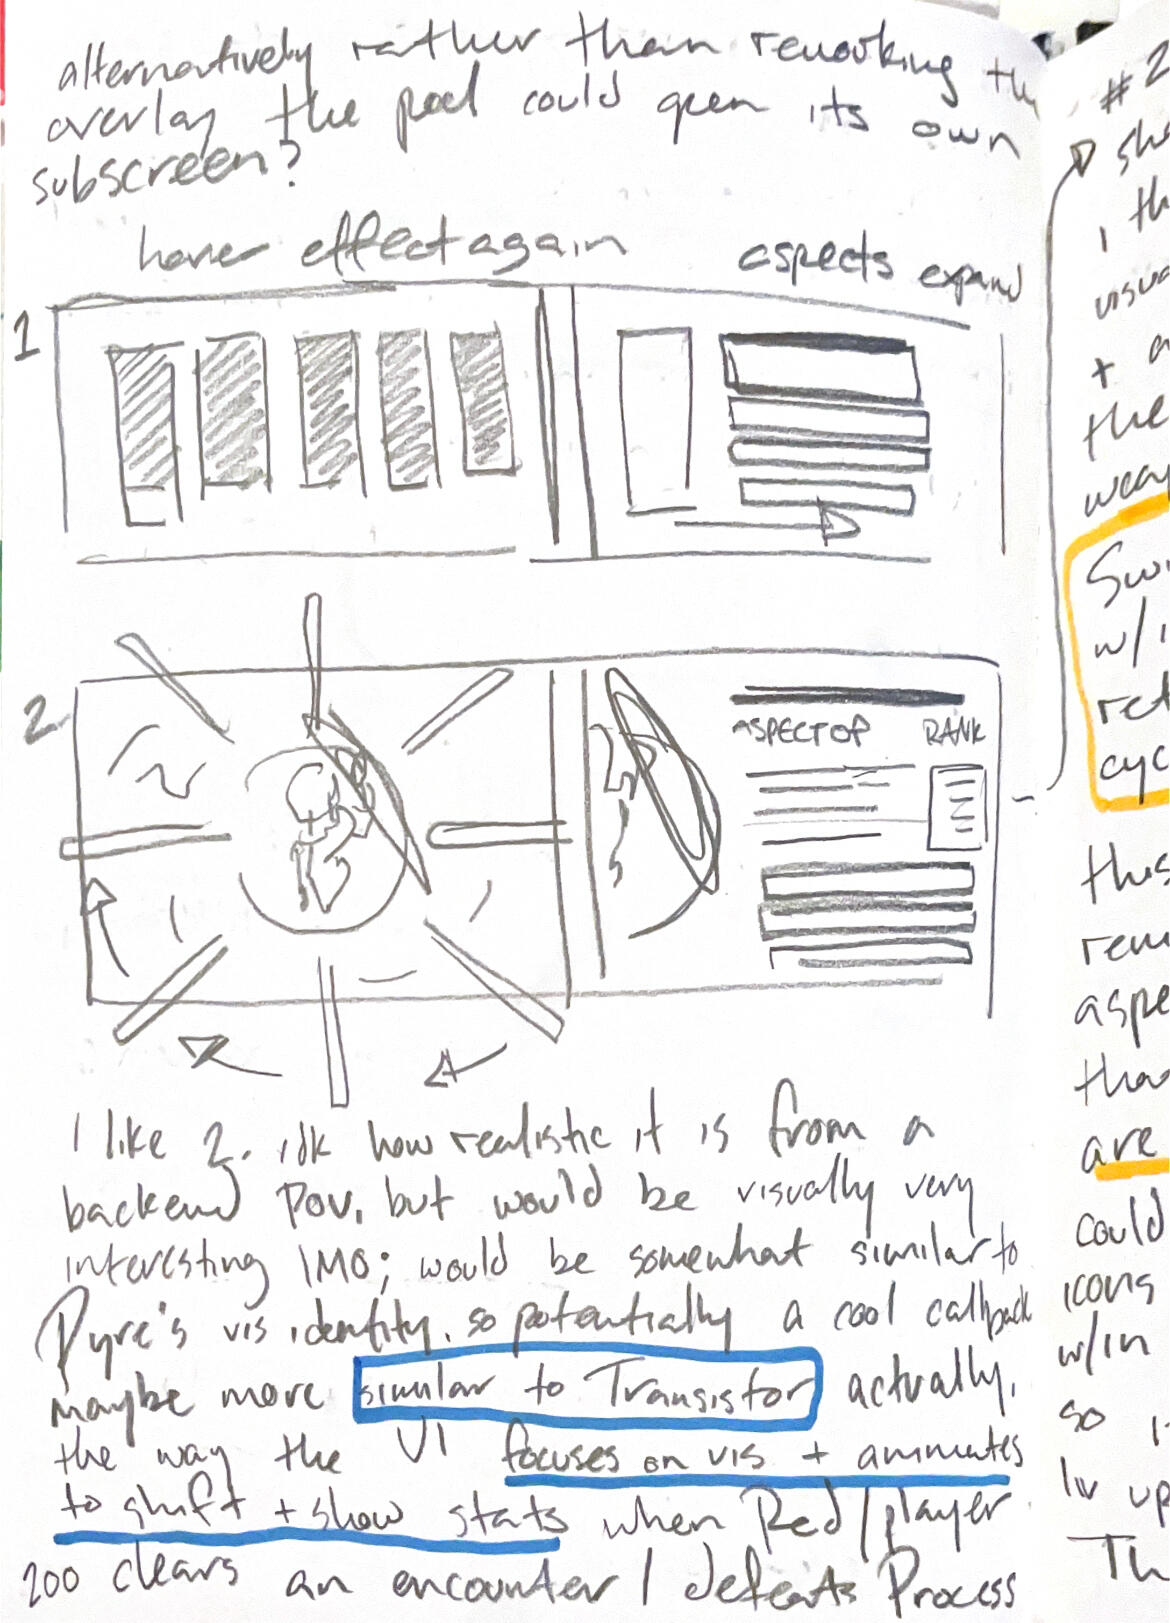 alternatively rather than reworking the
overlay the pool could open its own
subscreen?
hover effect again
aspects expand
1
2
ASPECT OF RANK
I like 2. idk how realistic it is from a
backend POV, but would be visually very
interesting IMO; would be somewhat similar to
Pyre's vis identity. so potentially a cool callback
maybe more similar to Transistor actually,
the way the UI focuses on vis + animates
to shift + show stats when Red/player
200 clears an encounter / defeats Process
#2
sho
, th
visua
+ a
the
weap
Swi
w/i
ret
cyc
this
rem
aspe
tha
are
could
icons
w/in
so i
lv up
Th